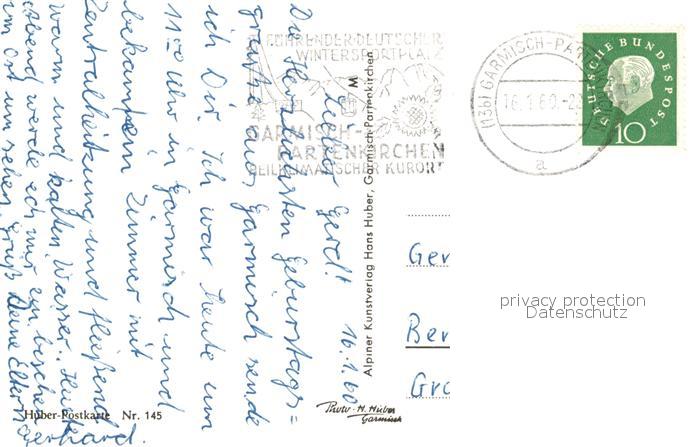 16.1.60
Lieber Gerd!
Die herzlichsten Geburtstags=
grüsse aus Garmisch sende
ich Dir. Ich war heute um
11:00 Uhr in Garmisch und
bekam ein Zimmer mit
Zentralheizung und fließend
warm und kalten Wasser. Heute
Abend werde ich mir ein bischen
um Ort um sehen. Gruß Deine Eltern
Gerhard.
FÜHRENDER DEUTSCHER
WINTERSPORTPLATZ
GARMISCH-
PARTENKIRCHEN
HEILKLIMATISCHER KURORT
(13b) GARMISCH-PARTENKIRCHEN
16.1.60.-2
a
DEUTSCHE BUNDESPOST
10
M
Alpiner Kunstverlag Hans Huber, Garmisch-Partenkirchen
Ger
Ber
Gro
privacy protection
Datenschutz
Huber-Postkarte Nr. 145
Photo-H. Huber
Garmisch